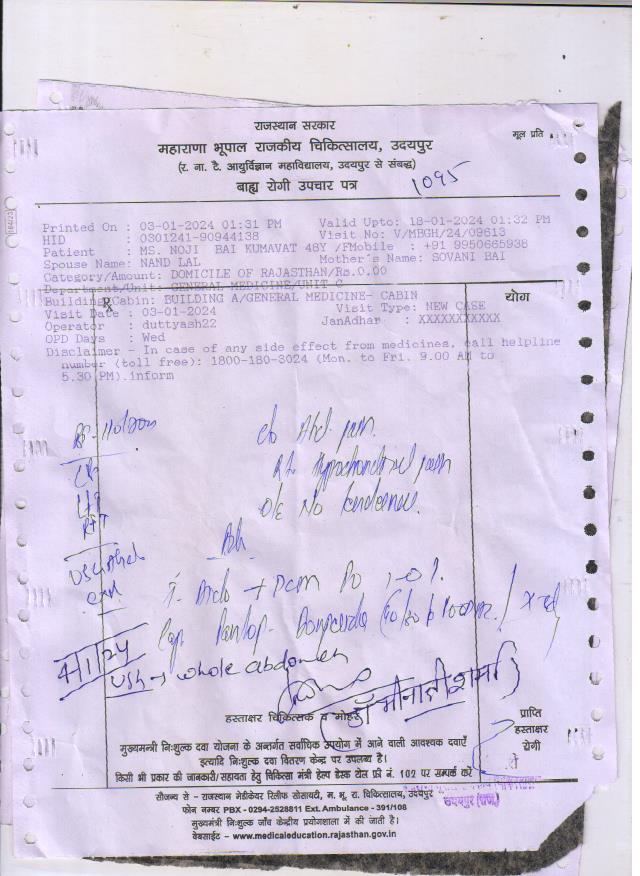 राजस्थान सरकार
मूल प्रति
महाराणा भूपाल राजकीय चिकित्सालय, उदयपुर
(र. ना. टै. आयुर्विज्ञान महाविद्यालय, उदयपुर से संबद्ध)
बाह्य रोगी उपचार पत्र
1095
Printed On : 03-01-2024 01:31 PM Valid Upto: 18-01-2024 01:32 PM
HID : 0301241-90944138 Visit No: V/MBGH/24/09613
Patient : MS. NOJI BAI KUMAVAT 48Y /FMobile : +91 9950665938
Spouse Name: NAND LAL Mother's Name: SOVANI BAI
Category/Amount: DOMICILE OF RAJASTHAN/Rs.0.00
Department/Unit: GENERAL MEDICINE/UNIT C
Building/Cabin: BUILDING A/GENERAL MEDICINE- CABIN
योग
R
Visit Date : 03-01-2024 Visit Type: NEW CASE
Operator : duttyash22 JanAdhar : XXXXXXXXXXX
OPD Days : Wed
Disclaimer - In case of any side effect from medicines, call helpline
number (toll free): 1800-180-3024 (Mon. to Fri. 9.00 AM to
5.30 PM).inform
c/o Abd. pain.
Rt. Hypochondrial pain
O/E No tenderness.
USG Abd
Cap. Pantop-
USG → whole abdomen
हस्ताक्षर चिकित्सक व मोहर
प्राप्ति
हस्ताक्षर
रोगी
मुख्यमन्त्री निःशुल्क दवा योजना के अन्तर्गत सर्वाधिक उपयोग में आने वाली आवश्यक दवाएँ
इत्यादि निःशुल्क दवा वितरण केन्द्र पर उपलब्ध है।
किसी भी प्रकार की जानकारी/सहायता हेतु चिकित्सा मंत्री हेल्प डेस्क टोल फ्री नं. 102 पर सम्पर्क करे
सौजन्य से - राजस्थान मेडीकेयर रिलीफ सोसायटी, म. भू. रा. चिकित्सालय, उदयपुर
फोन नम्बर PBX - 0294-2528811 Ext. Ambulance - 391/108
मुख्यमंत्री निःशुल्क जाँच केन्द्रीय प्रयोगशाला में की जाती है।
वेबसाईट - www.medicaleducation.rajasthan.gov.in